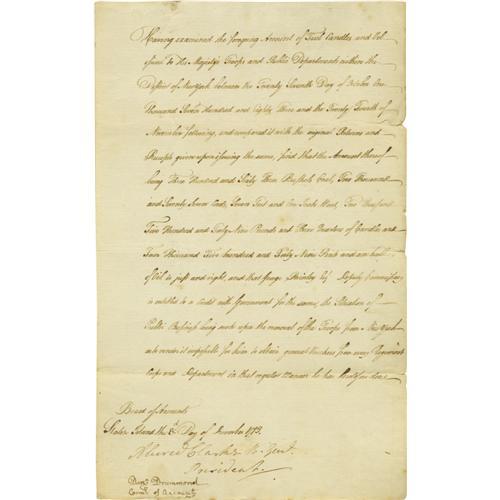 Having examined the foregoing Account of Fuel Candles and Oil
issued to His Majestys Troops and Public Departments within the
District of New York between the Twenty Seventh Day of October One
thousand Seven Hundred and Eighty Three and the Twenty Fourth of
November following, and compared it with the original Returns and
Receipts given upon issuing the same, find that the Amount thereof
being Three Hundred and Sixty Three Bushels Coal, Two Thousand
and Twenty Seven Cords, Seven Feet and Six Inch Wood, Two Thousand
Two Hundred and Sixty Nine Pounds and Three Quarters of Candles and
Two Hundred and Sixty Nine Pints and an half
of Oil is just and right, and that George Brinley Esqr Deputy Commissary
is entitled to a Credit with Government for the same, the Situation of
Public Business being such upon the removal of the Troops from New York
as to render it impossible for him to obtain general Vouchers from every Regiment
Corps and Department in that regular Manner he has heretofore done
Board of Accounts
Staten Island the Day of December 1783.
Alured Clarke M. Genl.
President
Dun. Drummond
Comr. of Accounts